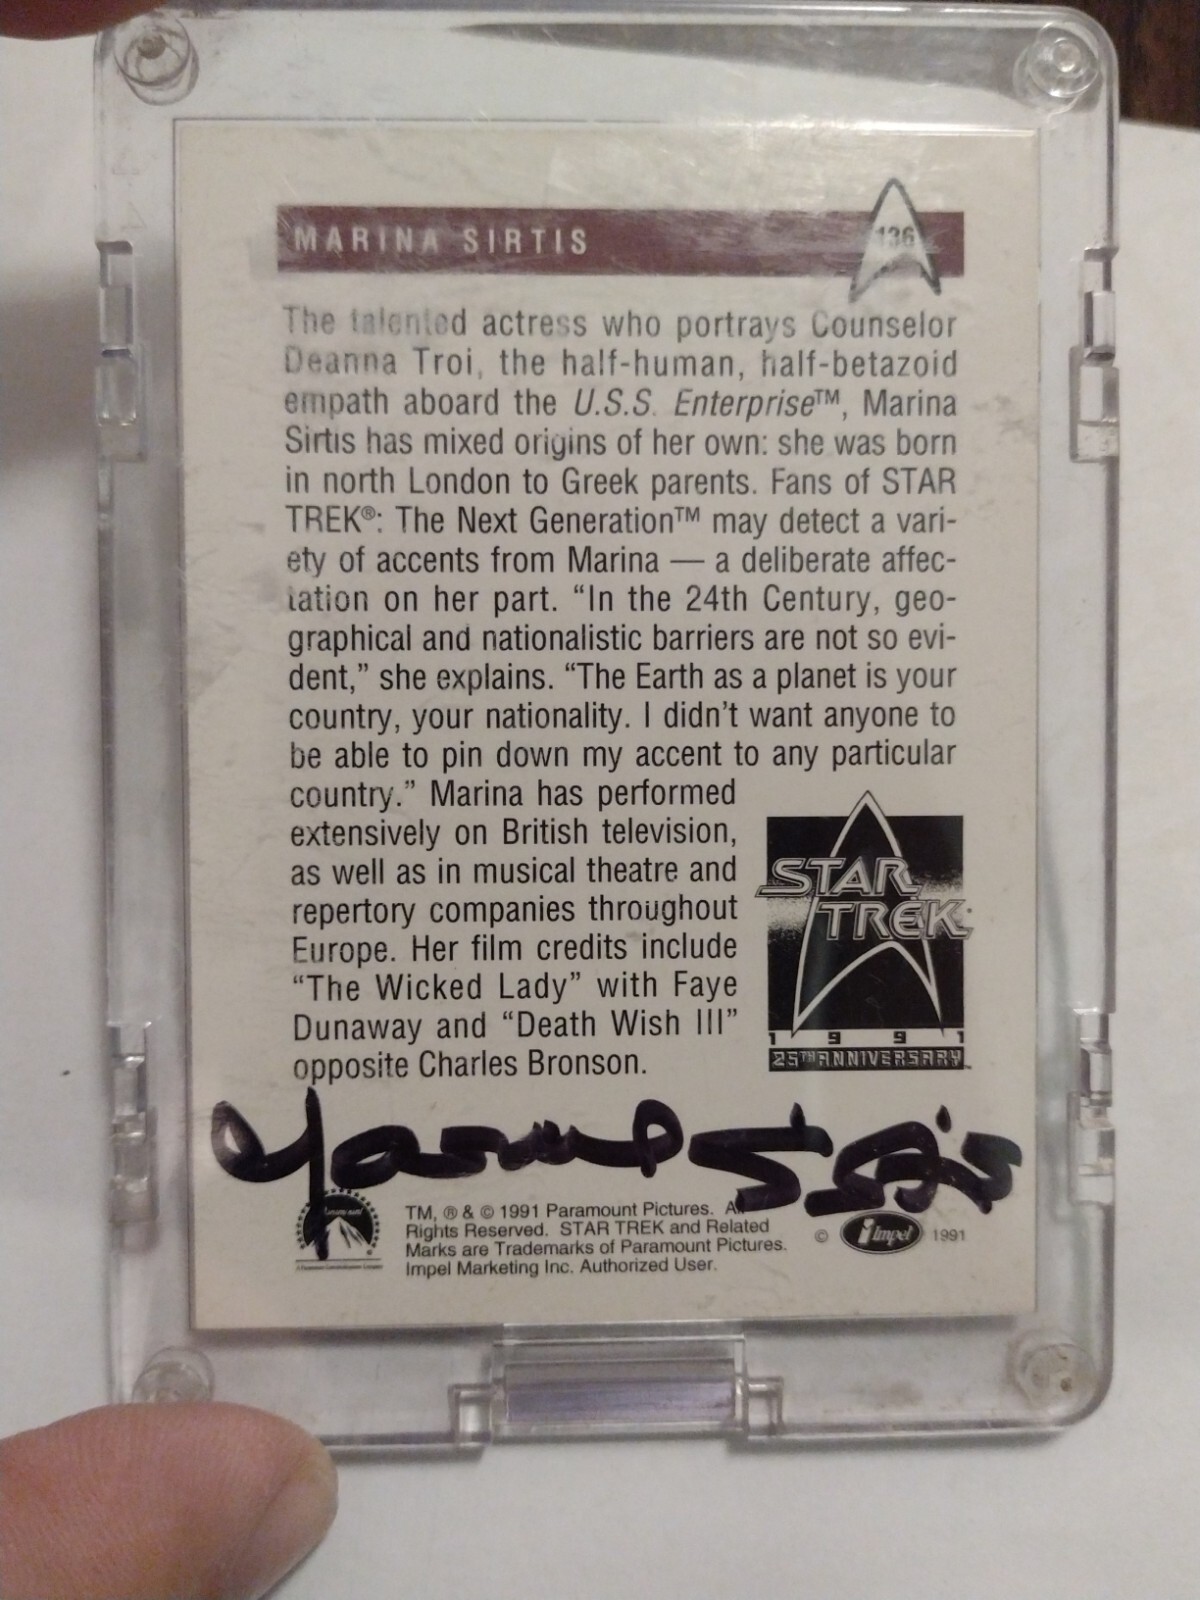 MARINA SIRTIS
136
The talented actress who portrays Counselor
Deanna Troi, the half-human, half-betazoid
empath aboard the U.S.S. Enterprise™, Marina
Sirtis has mixed origins of her own: she was born
in north London to Greek parents. Fans of STAR
TREK®: The Next Generation™ may detect a vari-
ety of accents from Marina — a deliberate affec-
tation on her part. “In the 24th Century, geo-
graphical and nationalistic barriers are not so evi-
dent,” she explains. “The Earth as a planet is your
country, your nationality. I didn’t want anyone to
be able to pin down my accent to any particular
country.” Marina has performed
extensively on British television,
as well as in musical theatre and
repertory companies throughout
Europe. Her film credits include
“The Wicked Lady” with Faye
Dunaway and “Death Wish III”
opposite Charles Bronson.
STAR
TREK
1991
25TH ANNIVERSARY
Marina Sirtis
TM, ® & © 1991 Paramount Pictures. All
Rights Reserved. STAR TREK and Related
Marks are Trademarks of Paramount Pictures.
Impel Marketing Inc. Authorized User.
© Impel 1991